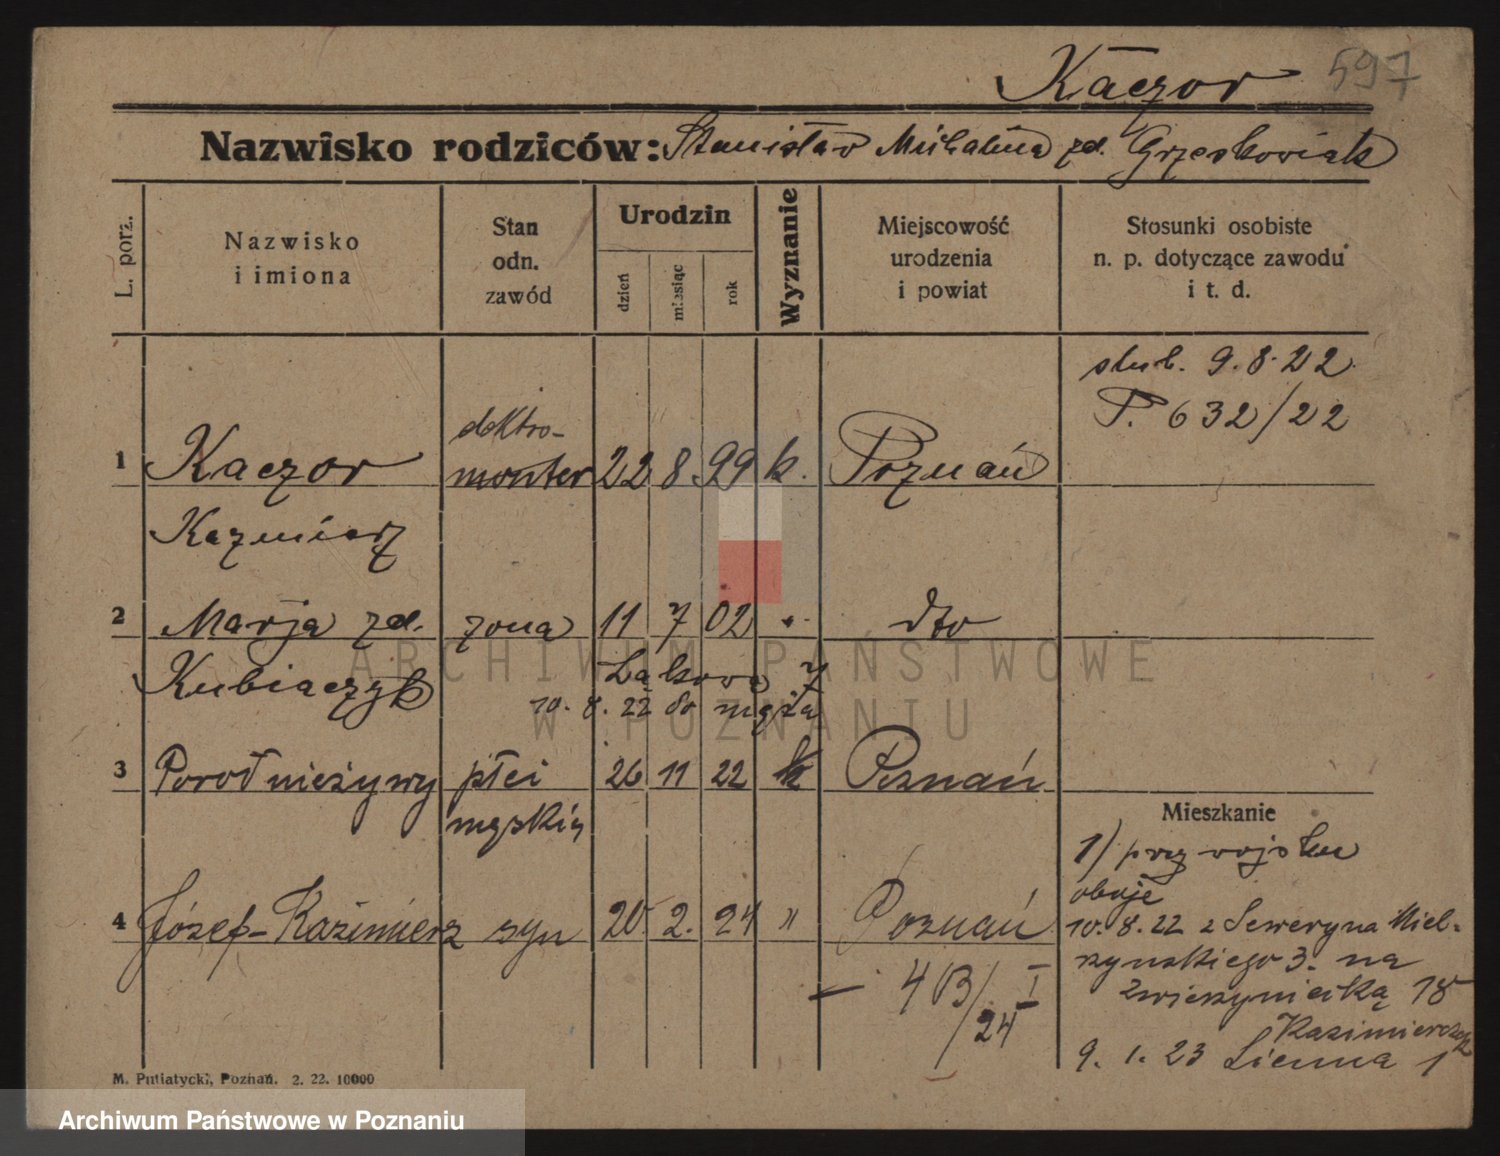 Kaczor 597
Nazwisko rodziców: Stanisław Michalina zd. Grześkowiak
L. porz.
Nazwisko
i imiona
Stan
odn.
zawód
Urodzin
dzień
miesiąc
rok
Wyznanie
Miejscowość
urodzenia
i powiat
Stosunki osobiste
n. p. dotyczące zawodu
i t. d.
ślub. 9. 8. 22
P. 632/22
elektro-
1 Kaczor monter 22 8. 99 k. Poznań
Kazmierz
2 Marja zd. żona 11 7 02 dto
Kubiaczyk Łąkowa 7
10. 8. 22 do męża
3 Poród nieżywy płci 26 11 22 k Poznań
męskiej
Mieszkanie
1) przy wojsku
oboje
4 Józef-Kazimierz syn 20 2. 24 " Poznań
10. 8. 22 z Seweryna Miel-
żyńskiego 3. na
Zwierzyniecką 18
— 4 B/24 I
Kazimierza
9. 1. 23 Sienna 1
M. Putiatycki, Poznań. 2. 22. 10000
ARCHIWUM PAŃSTWOWE
W POZNANIU
Archiwum Państwowe w Poznaniu